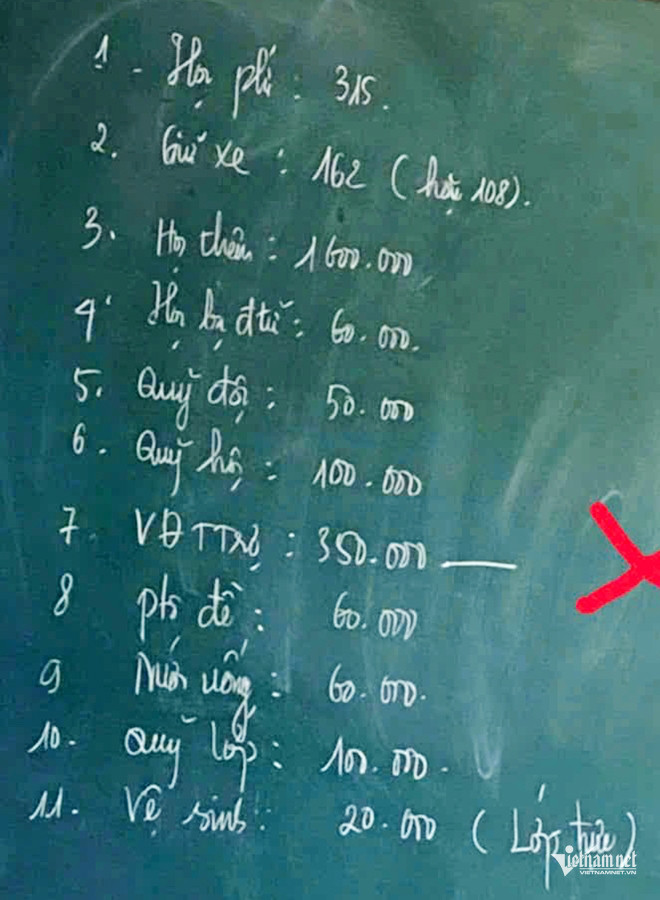 1 - Học phí : 315.
2. Giữ xe : 162 (hoặc 108).
3. Học thêm : 1600.000
4. Học bạ đtử : 60.000.
5. Quỹ đội : 50.000
6. Quỹ hội : 100.000
7 VĐTTrợ : 350.000
8 phô đề : 60.000
9 Nước uống : 60.000.
10. Quỹ lớp : 100.000.
11. Vệ sinh : 20.000 (Lớp thuê)
vietnamnet
VIETNAMNET.VN